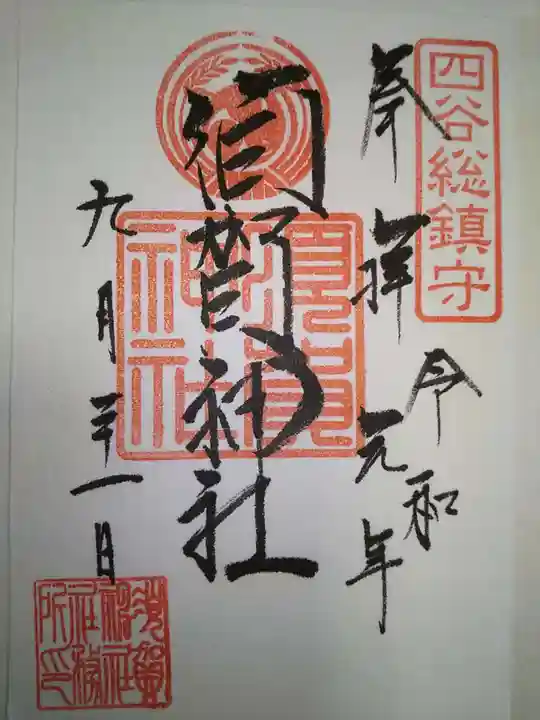 四谷総鎮守
奉拝
令和
元年
須賀神社
須賀神社
九月二十一日
須賀神社社務所印